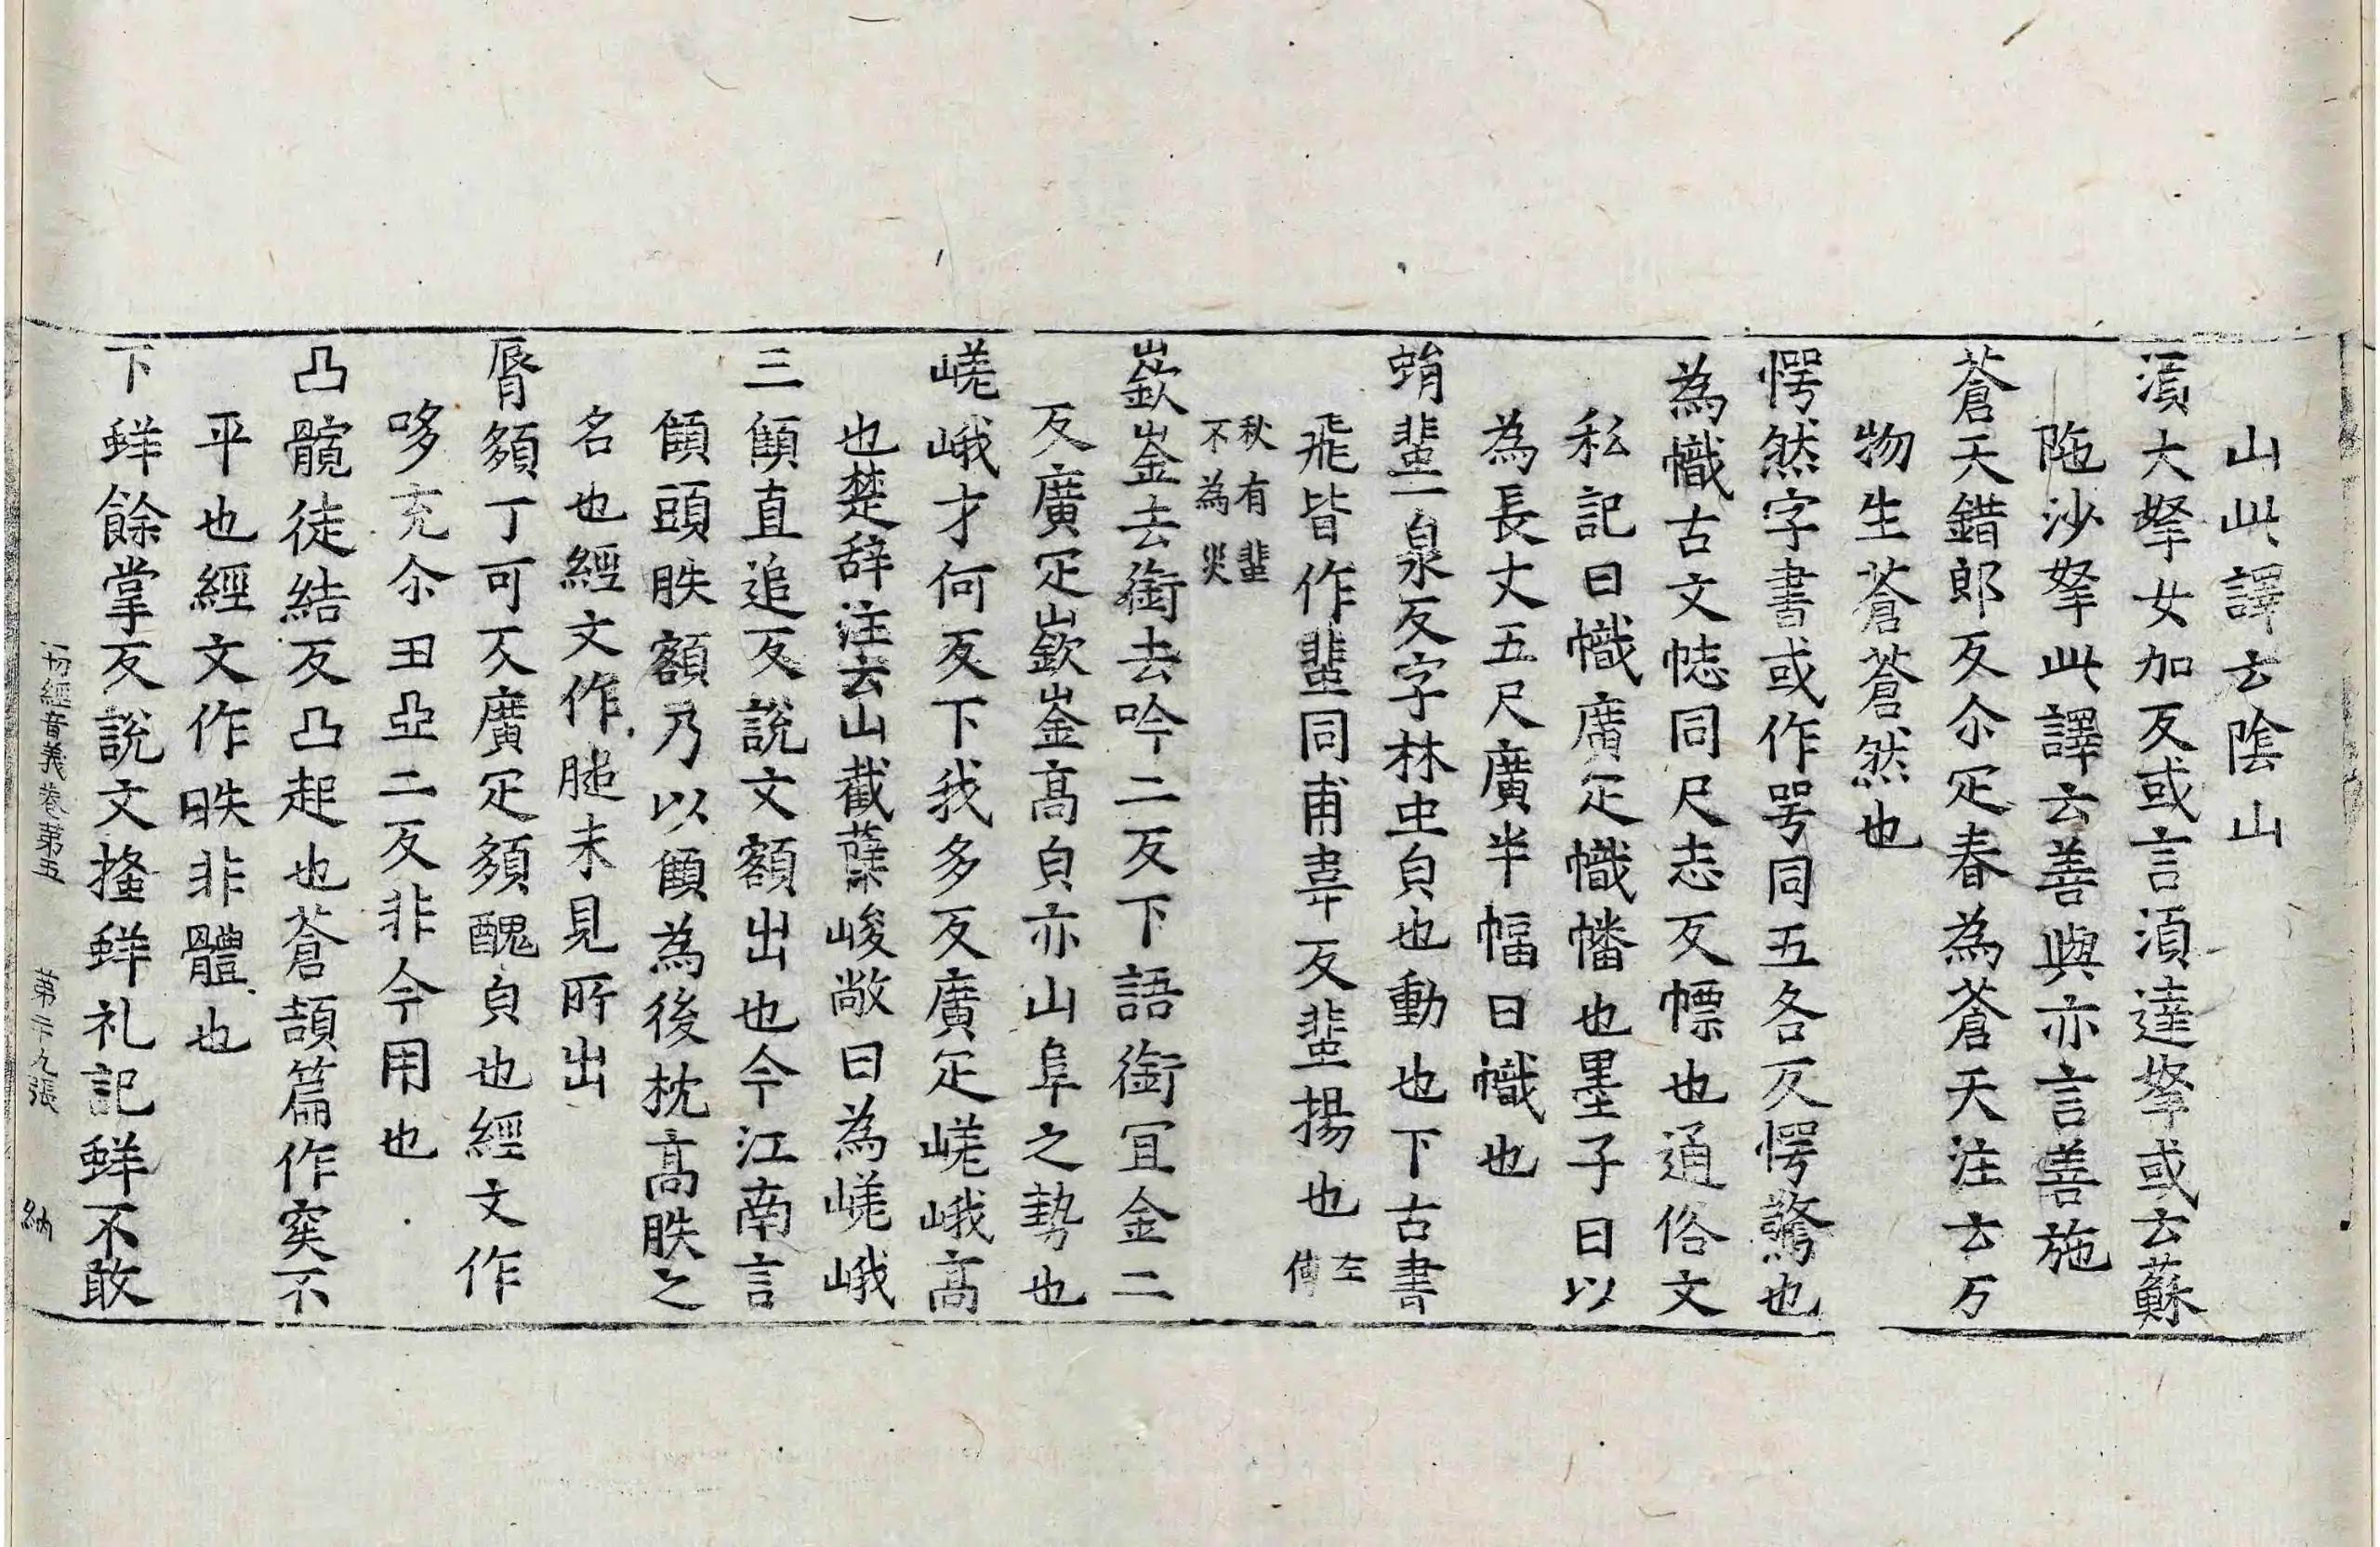 山此譯云陰山
湏大拏女加反或言湏達拏或云蘇
陁沙拏此譯云善與亦言善施
蒼天錯郎反尒疋春為蒼天注云万
物生蒼蒼然也
愕然字書或作咢同五各反愕驚也
為幟古文㤅同尺志反幖也通俗文
私記曰幟廣疋幟幡也墨子曰以
為長丈五尺廣半幅曰幟也
蜎蜚一泉反字林虫㒵也動也下古書
飛皆作蜚同甫韋反蜚揚也左傳
秋有蜚不為災
嶔崟去銜去吟二反下語銜冝金二
反廣疋嶔崟高㒵亦山阜之勢也
嵯峨才何反下我多反廣疋嵯峨高
也楚辞注云山截𡾲峻敞曰為嵯峨
三顀直追反說文額出也今江南言
顀頭胅額乃以顀為後枕高胅之
名也經文作膇未見所出
脣䫂丁可反廣疋䫂醜㒵也經文作
哆充尒丑亞二反非今用也
凸髖徒結反凸起也蒼頡篇作突不
平也經文作昳非體也
下蛘餘掌反說文搔蛘礼記蛘不敢
一切經音義卷第五 第二十九張 納